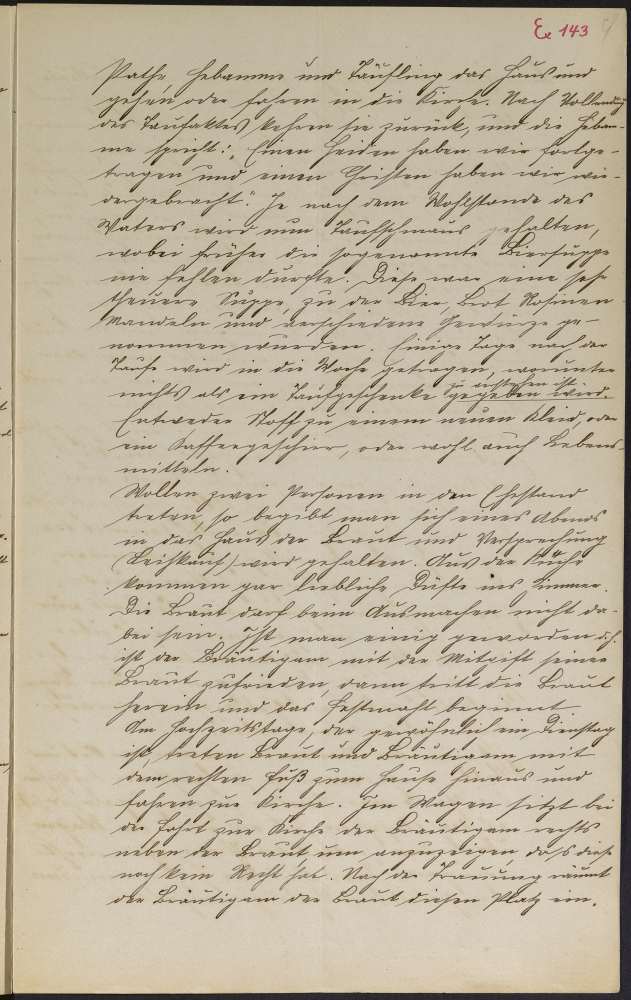 E 143
Pathe, Hebamme und Täufling das Haus und
gehen oder fahren in die Kirche. Nach Vollendung
des Taufaktes kehren sie zurück, und die Hebam-
me spricht: „Einen Heiden haben wir fortge-
tragen und einen Christen haben wir wie-
dergebracht." Je nach dem Wohlstande des
Vaters wird nun Taufschmaus gehalten,
wobei früher die sogenannte Biersuppe
nie fehlen durfte. Diese war eine sehr
theuere Suppe, zu der Bier, Brot Rosinen
Mandeln und verschiedene Gewürze ge-
nommen wurden. Einige Tage nach der
Taufe wird in die Woche getragen, worunter
zu verstehen ist
nichts als ein Taufgeschenke gegeben wird.
Entweder Stoff zu einem neuen Kleid, oder
ein Kaffeegeschirr, oder wohl auch Lebens-
mitteln.
Wollen zwei Personen in den Ehestand
treten, so begibt man sich eines Abends
in das Haus der Braut und Versprechung
(Leihkauf) wird gehalten. Aus der Küche
kommen gar liebliche Düfte ins Zimmer.
Die Braut darf beim Ausmachen nicht da-
bei sein. Ist man einig geworden d.h.
ist der Bräutigam mit der Mitgift seiner
Braut zufrieden, dann tritt die Braut
herein und das Festmahl beginnt.
Am Hochzeitstage, der gewöhnlich ein Dienstag
ist, treten Braut und Bräutigam mit
dem rechten Fuß zum Hause hinaus und
fahren zur Kirche. Im Wagen sitzt bei
der Fahrt zur Kirche der Bräutigam rechts
neben der Braut, um anzuzeigen, dass diese
noch kein Recht hat. Nach der Trauung räumt
der Bräutigam der Braut diesen Platz ein.